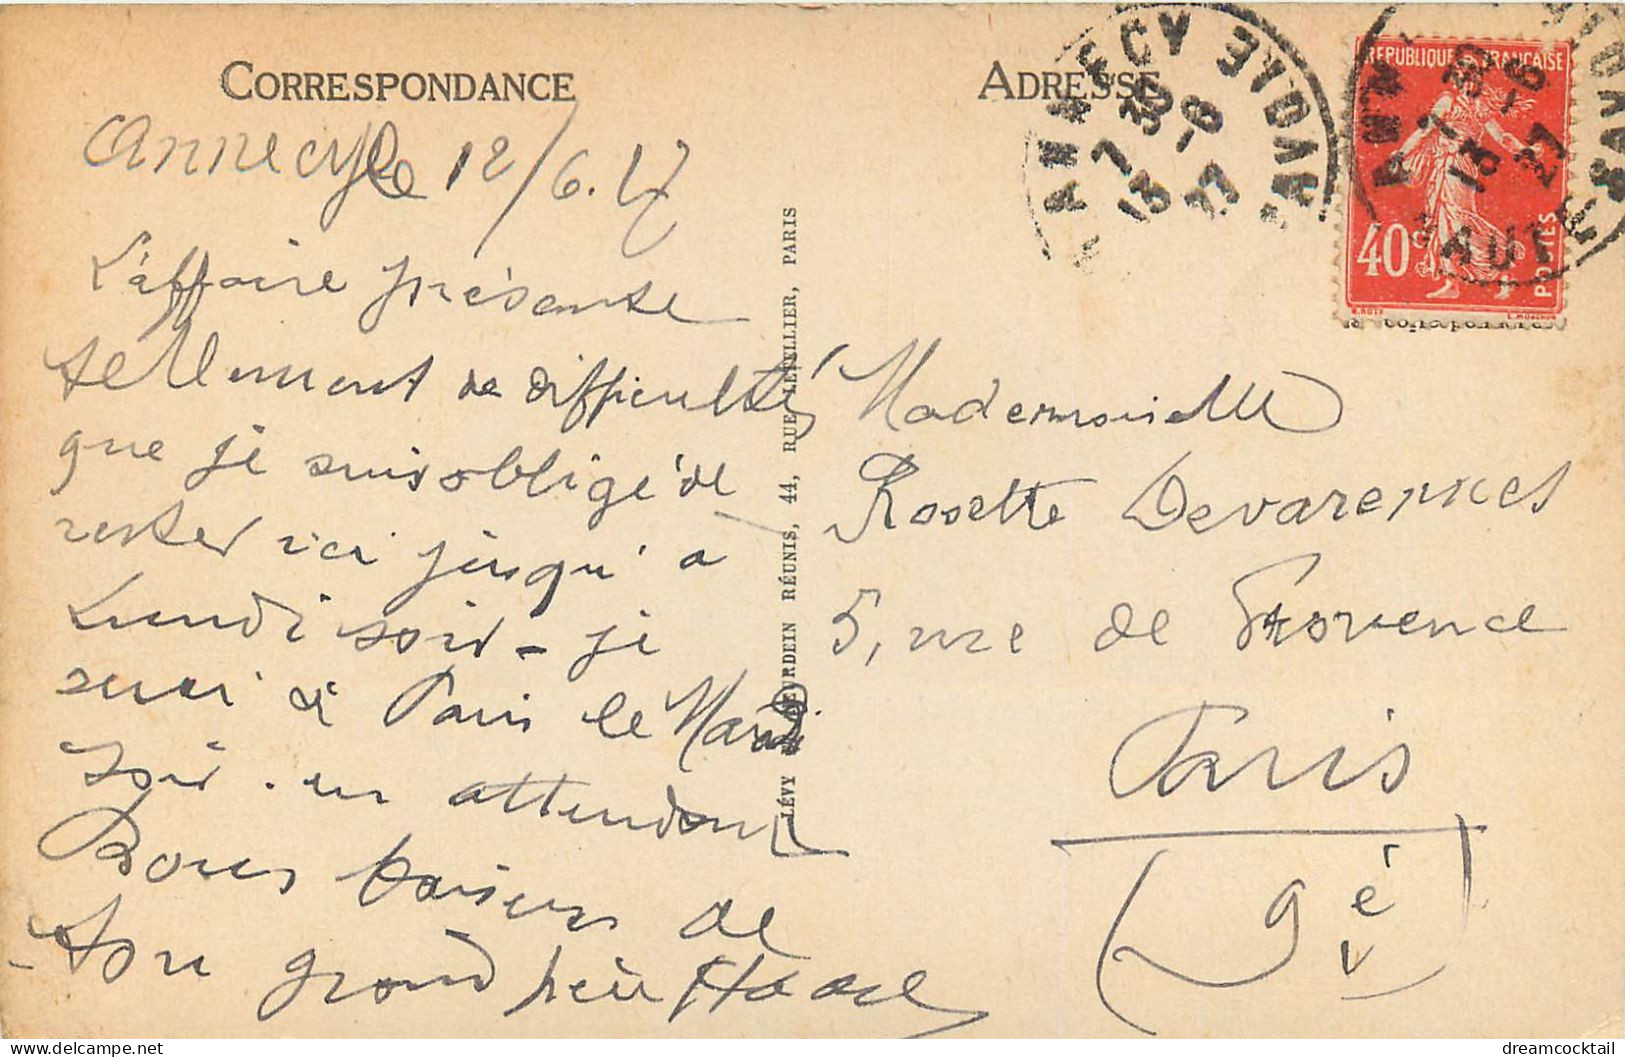 CORRESPONDANCE
Annecy le 12/6.27
L'affaire présente
tellement de difficultés
que je suis obligé de
rester ici jusqu'à
Lundi soir - je
serai à Paris le Mardi
soir. en attendant
Bons baisers de
ton grand père
LÉVY & NEURDEIN RÉUNIS, 44, RUE LETELLIER, PARIS
ADRESSE
ANNECY
7 30
13 -6
27
REPUBLIQUE FRANÇAISE
40c
POSTES
ANN
7 30
13 -6
27
Mademoiselle
Rosette Devarennes
5, rue de Provence
Paris
(9è)
dreamcocktail
delcampe.net